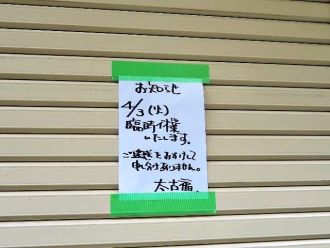 お知らせ
4/3(火)
臨時休業
いたします。
ご迷惑をおかけして
申し分けありません。
太古福.